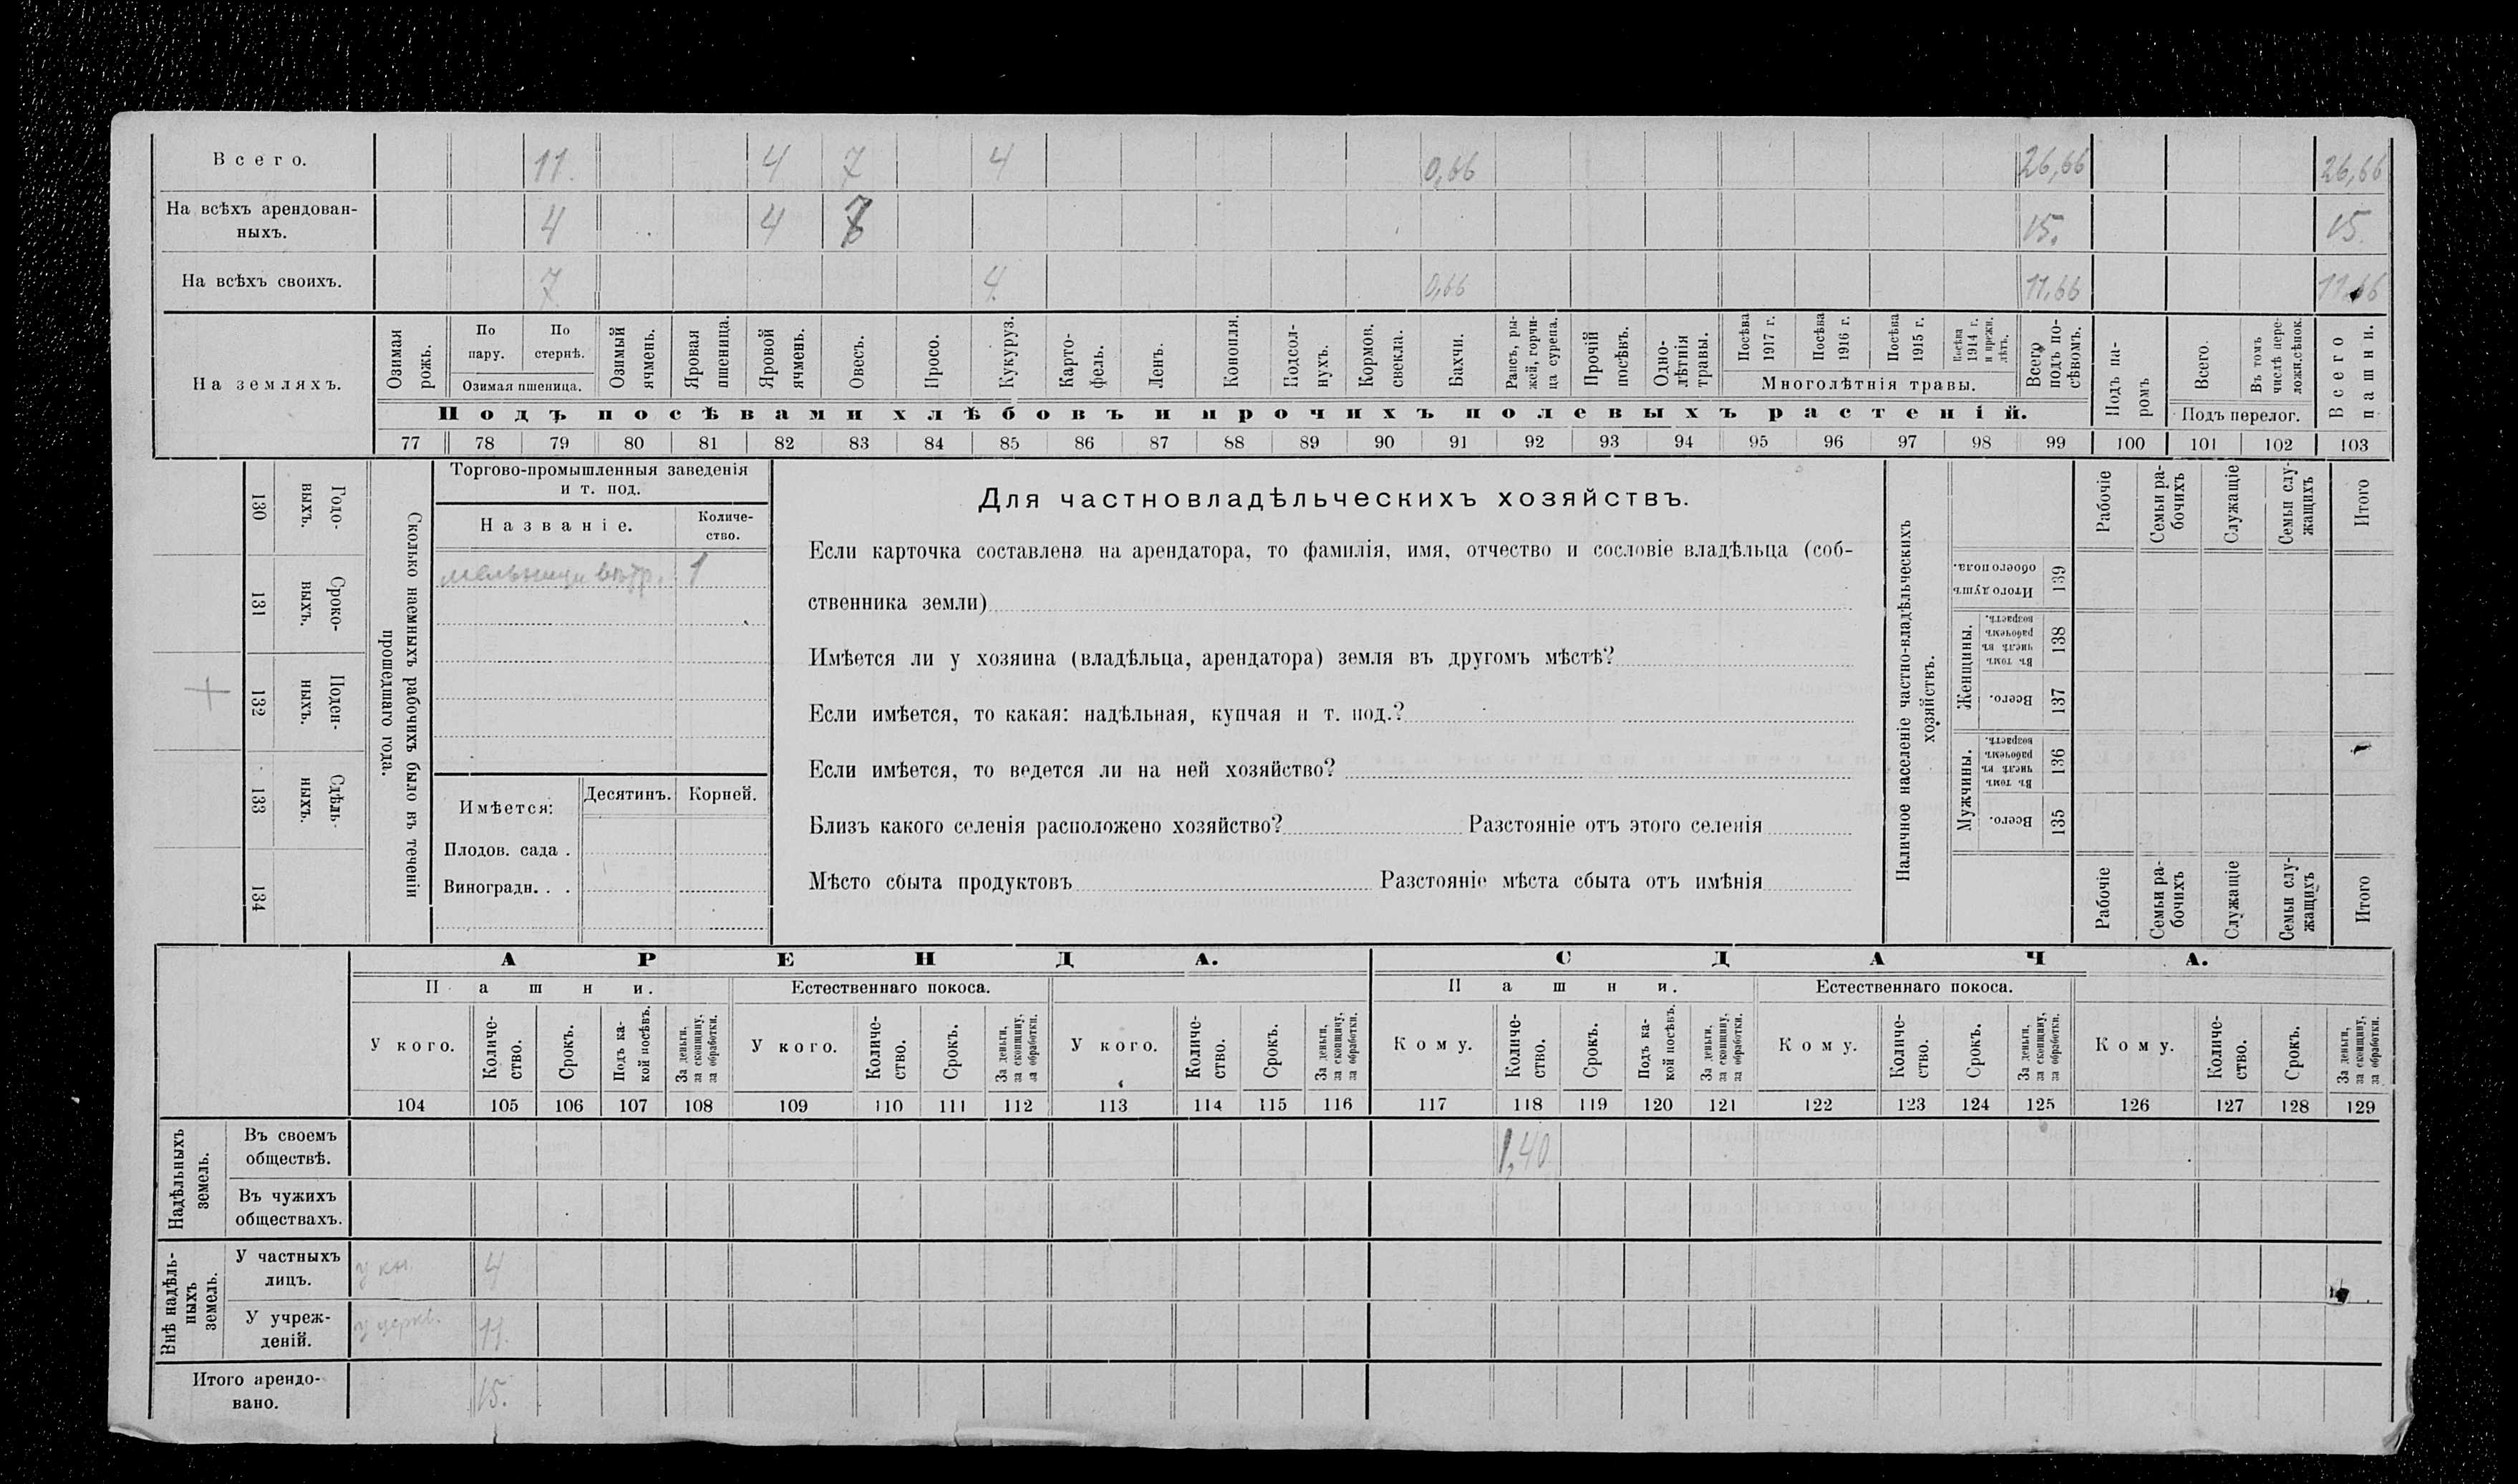 Всего. 11. 4 7 4 0,66 26,66 26,66
На всѣхъ арендован-
ныхъ. 4 4 7 15. 15.
На всѣхъ своихъ. 7 4. 0,66 11,66 11,66
На земляхъ.
Озимая рожь.
По пару.
По стернѣ.
Озимая пшеница.
Озимый ячмень.
Яровая пшеница.
Яровой ячмень.
Овесъ.
Просо.
Кукуруз.
Карто-
фель.
Ленъ.
Конопля.
Подсол-
нухъ.
Кормов.
свекла.
Бахчи.
Рапсъ, ры-
жей, горчи-
ца сурепа.
Прочій
посѣвъ.
Одно-
лѣтнія
травы.
Посѣва
1917 г.
Посѣва
1916 г.
Посѣва
1915 г.
Посѣва
1914 г.
и прежн.
лѣтъ.
Многолѣтнія травы.
Всего
подъ по-
сѣвомъ.
Подъ па-
ромъ
Всего.
Въ томъ
числѣ пере-
ложн.сѣнок.
Подъ перелог.
Всего
пашни.
Подъ посѣвами хлѣбовъ и прочихъ полевыхъ растеній.
77 78 79 80 81 82 83 84 85 86 87 88 89 90 91 92 93 94 95 96 97 98 99 100 101 102 103
130 Годо-
выхъ.
131 Сроко-
ныхъ.
132 Поден-
ныхъ.
133 Сдѣль-
ныхъ.
134
Сколько наемныхъ рабочихъ было въ теченіи
прошедшаго года.
Торгово-промышленныя заведенія
и т. под.
Названіе.
Количе-
ство.
мельница вѣтр. 1
Имѣется: Десятинъ. Корней.
Плодов. сада .
Виноградн. . .
Для частновладѣльческихъ хозяйствъ.
Если карточка составлена на арендатора, то фамилія, имя, отчество и сословіе владѣльца (соб-
ственника земли)
Имѣется ли у хозяина (владѣльца, арендатора) земля въ другомъ мѣстѣ?
Если имѣется, то какая: надѣльная, купчая и т. под.?
Если имѣется, то ведется ли на ней хозяйство?
Близъ какого селенія расположено хозяйство? Разстояніе отъ этого селенія
Мѣсто сбыта продуктовъ Разстояніе мѣста сбыта отъ имѣнія
Наличное населеніе частно-владѣльческихъ
хозяйствъ.
Рабочіе
Семьи ра-
бочихъ
Служащіе
Семьи слу-
жащихъ
Итого
Итого душъ
обоего пола.
139
Женщины.
Въ томъ
числѣ въ
рабочемъ
возрастѣ.
138
Всего.
137
Мужчины.
Въ томъ
числѣ въ
рабочемъ
возрастѣ.
136
Всего.
135
Рабочіе
Семьи ра-
бочихъ
Служащіе
Семьи слу-
жащихъ
Итого
АРЕНДА. СДАЧА.
Пашни. Естественнаго покоса. Пашни. Естественнаго покоса.
У кого.
Количе-
ство.
Срокъ.
Подъ ка-
кой посѣвъ.
За деньги,
за скопщину,
за обработки.
У кого.
Количе-
ство.
Срокъ.
За деньги,
за скопщину,
за обработки.
У кого.
Количе-
ство.
Срокъ.
За деньги,
за скопщину,
за обработки.
Кому.
Количе-
ство.
Срокъ.
Подъ ка-
кой посѣвъ.
За деньги,
за скопщину,
за обработки.
Кому.
Количе-
ство.
Срокъ.
За деньги,
за скопщину,
за обработки.
Кому.
Количе-
ство.
Срокъ.
За деньги,
за скопщину,
за обработки.
104 105 106 107 108 109 110 111 112 113 114 115 116 117 118 119 120 121 122 123 124 125 126 127 128 129
Надѣльныхъ
земель.
Въ своемъ
обществѣ. 1,40
Въ чужихъ
обществахъ.
Внѣ надѣль-
ныхъ
земель.
У частныхъ
лицъ. у кн. 4
У учреж-
деній. у церкв. 11.
Итого арендо-
вано. 15.